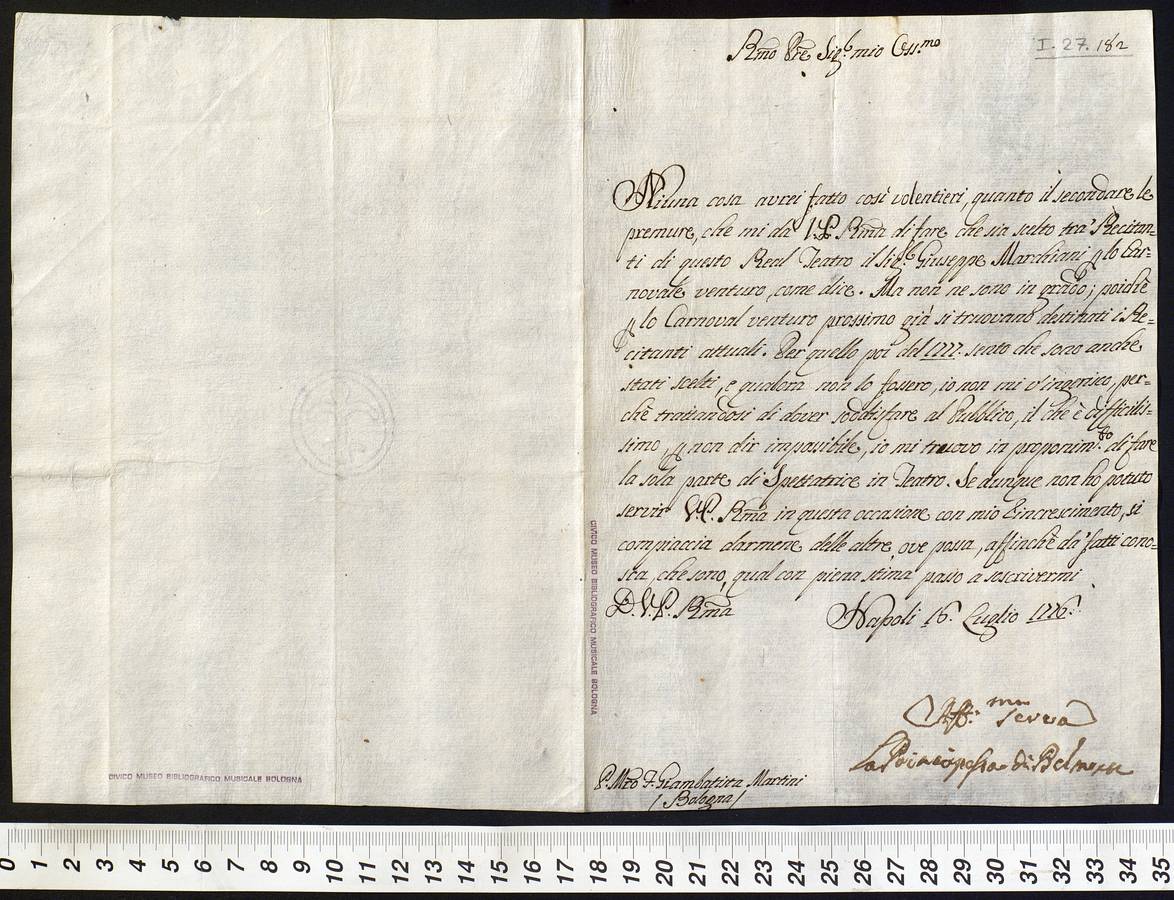 I. 27. 182
Rmo Pre Sigr. mio Oss.mo
Niuna cosa avrei fatto così volentieri, quanto il secondare le
premure, che mi dà V.P. Rma di fare che sia scelto tra' Recitan=
ti di questo Real Teatro il Sigr. Giuseppe Marchiani p lo Car=
novale venturo, come dice. Ma non ne sono in grado; poichè
p lo Carnoval venturo prossimo già si truovano destinati i Re=
citanti attuali. Per quello poi del 1777. sento che sono anche
stati scelti, e qualora non lo fossero, io non mi v'ingerisco, per=
chè trattandosi di dover soddisfare al Pubblico, il che è difficilis=
simo, p non dir impossibile, io mi truovo in proponim.to di fare
la sola parte di Spettatrice in Teatro. Se dunque non ho potuto
servir V.P. Rma in questa occasione con mio rincrescimento, si
compiaccia darmene delle altre, ove possa, affinchè da' fatti cono=
sca, che sono, qual con piena stima passo a soscrivermi
D. V. P. Rma
Napoli 16. Luglio 1776.
Aff.ma Serva
La Principessa di Belmon
P. Mro F. Giambatista Martini
/Bologna/
CIVICO MUSEO BIBLIOGRAFICO MUSICALE BOLOGNA
CIVICO MUSEO BIBLIOGRAFICO MUSICALE BOLOGNA
0 1 2 3 4 5 6 7 8 9 10 11 12 13 14 15 16 17 18 19 20 21 22 23 24 25 26 27 28 29 30 31 32 33 34 35